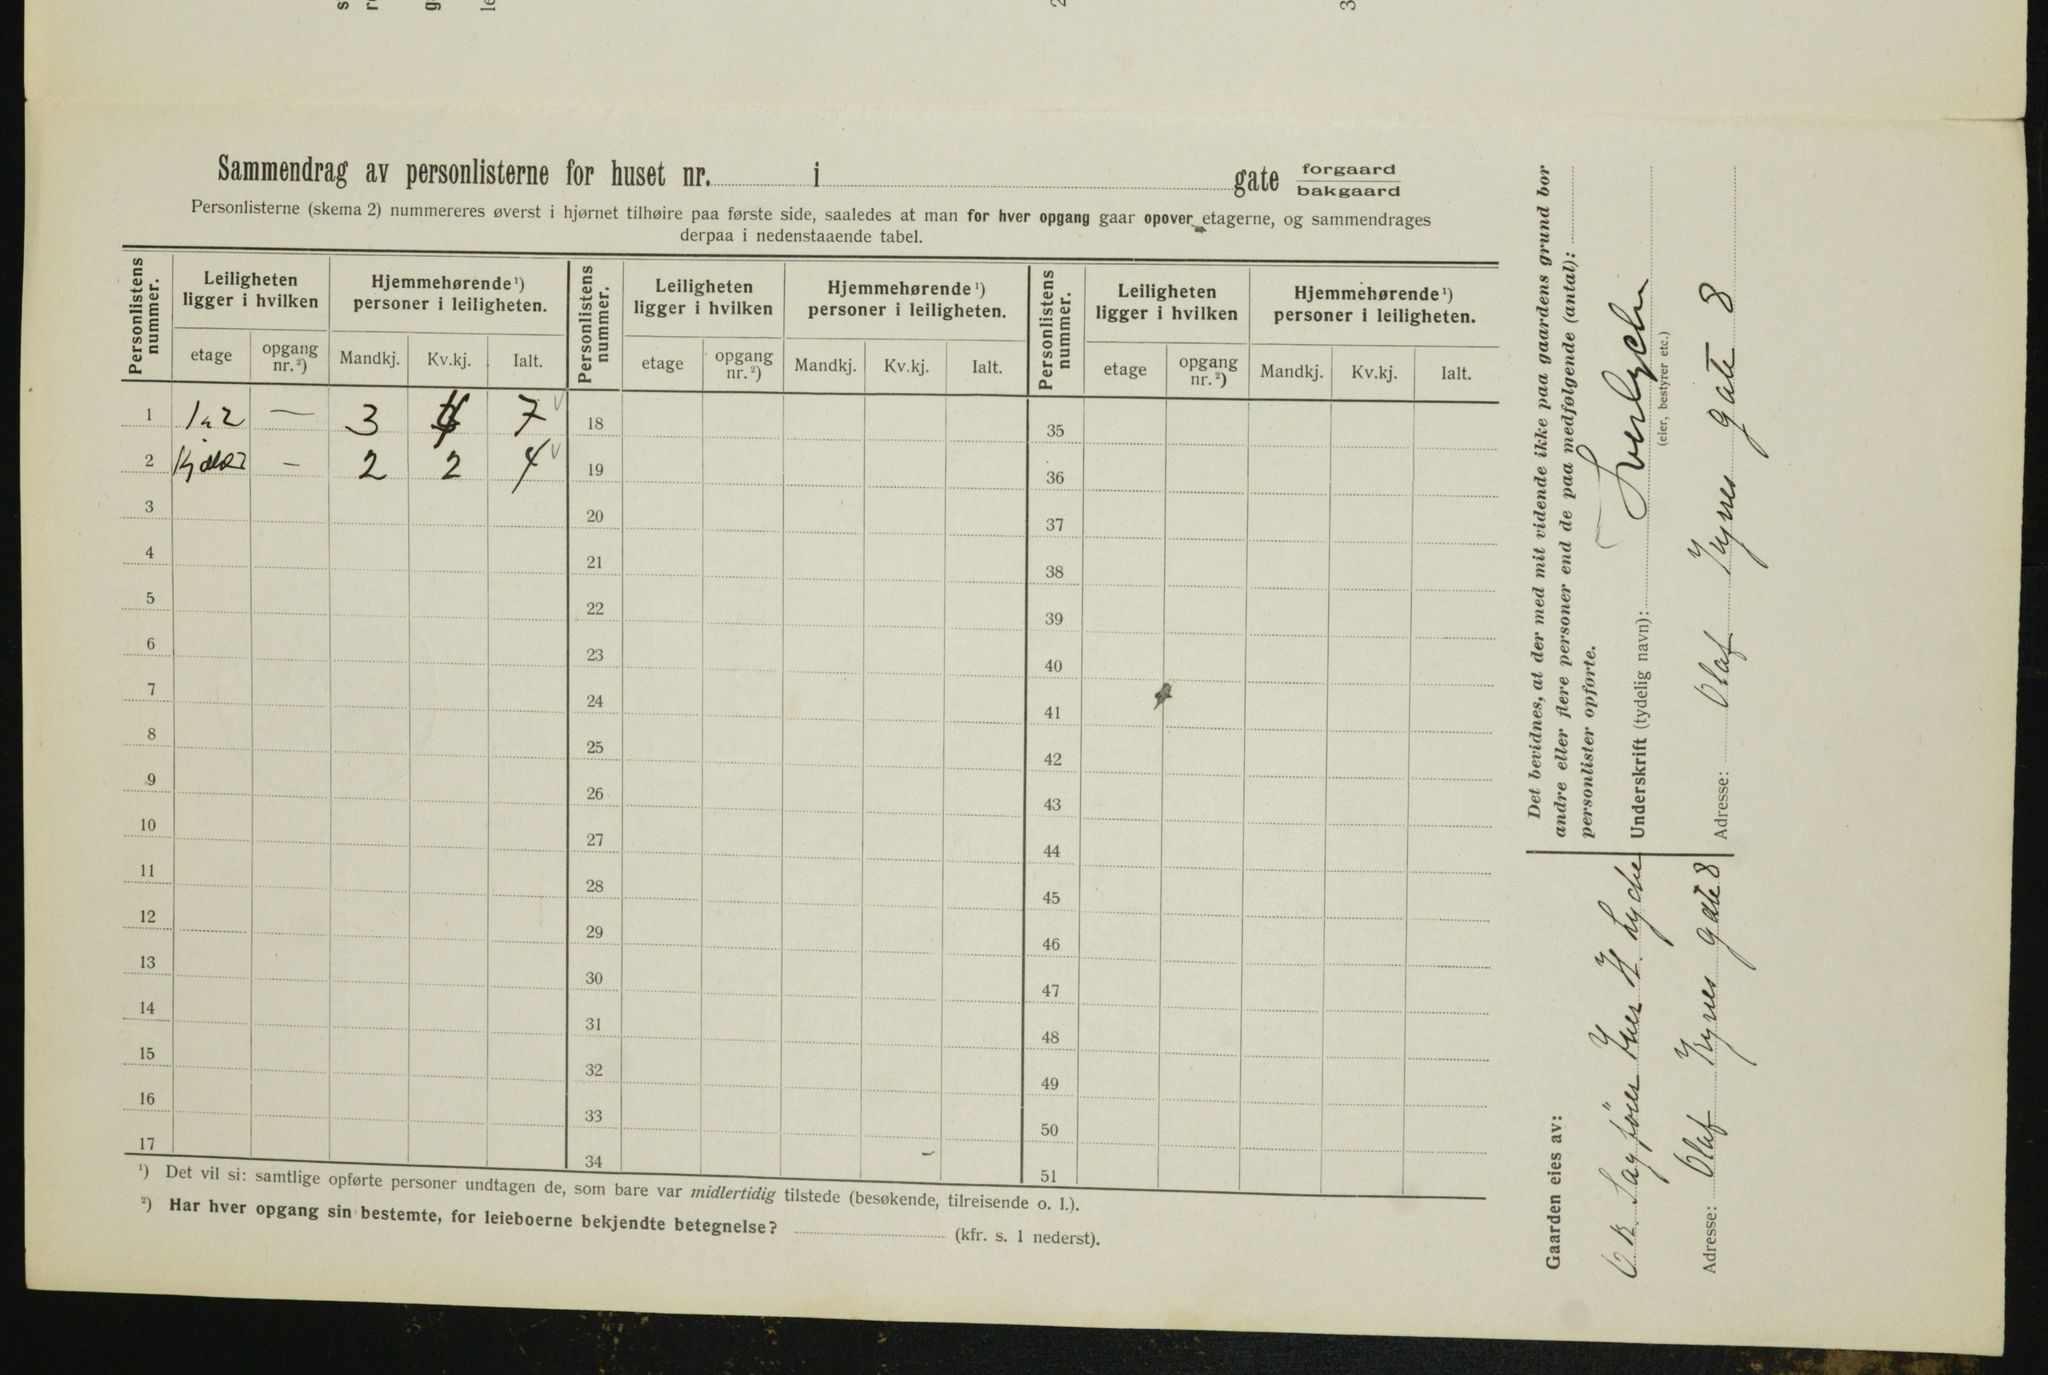 Sammendrag av personlisterne for huset nr. i gate forgaard bakgaard
Personlisterne (skema 2) nummereres øverst i hjørnet tilhøire paa første side, saaledes at man for hver opgang gaar opover etagerne, og sammendrages
derpaa i nedenstaaende tabel.
Personlistens nummer. Leiligheten ligger i hvilken Hjemmehørende ¹) personer i leiligheten. Personlistens nummer. Leiligheten ligger i hvilken Hjemmehørende ¹) personer i leiligheten. Personlistens nummer. Leiligheten ligger i hvilken Hjemmehørende ¹) personer i leiligheten.
etage opgang nr. ²) Mandkj. Kv.kj. Ialt. etage opgang nr. ²) Mandkj. Kv.kj. Ialt. etage opgang nr. ²) Mandkj. Kv.kj. Ialt.
1 — 3 4 7 18 35
2 Kjelder — 2 2 4 19 36
3 20 37
4 21 38
5 22 39
6 23 40
7 24 41
8 25 42
9 26 43
10 27 44
11 28 45
12 29 46
13 30 47
14 31 48
15 32 49
16 33 50
17 34 51
¹) Det vil si: samtlige opførte personer undtagen de, som bare var midlertidig tilstede (besøkende, tilreisende o. l.).
²) Har hver opgang sin bestemte, for leieboerne bekjendte betegnelse? (kfr. s. 1 nederst).
Gaarden eies av:
Adresse: Olaf Kyrres gate 8
Det bevidnes, at der med mit vidende ikke paa gaardens grund bor
andre eller flere personer end de paa medfølgende (antal):
personlister opførte.
Underskrift (tydelig navn):
(eier, bestyrer etc.)
Adresse: Olaf Kyrres gate 8